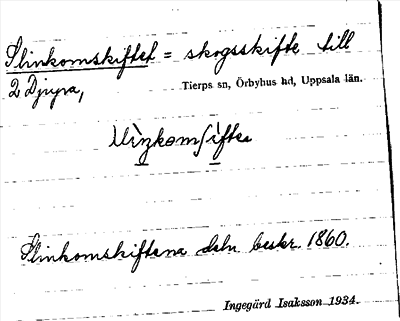 Slinkomskiftet = skogsskifte till
2 Djupa, Tierps sn, Örbyhus hd, Uppsala län.
Slinkomskiftena deln. beskr. 1860.
Ingegärd Isaksson 1934.